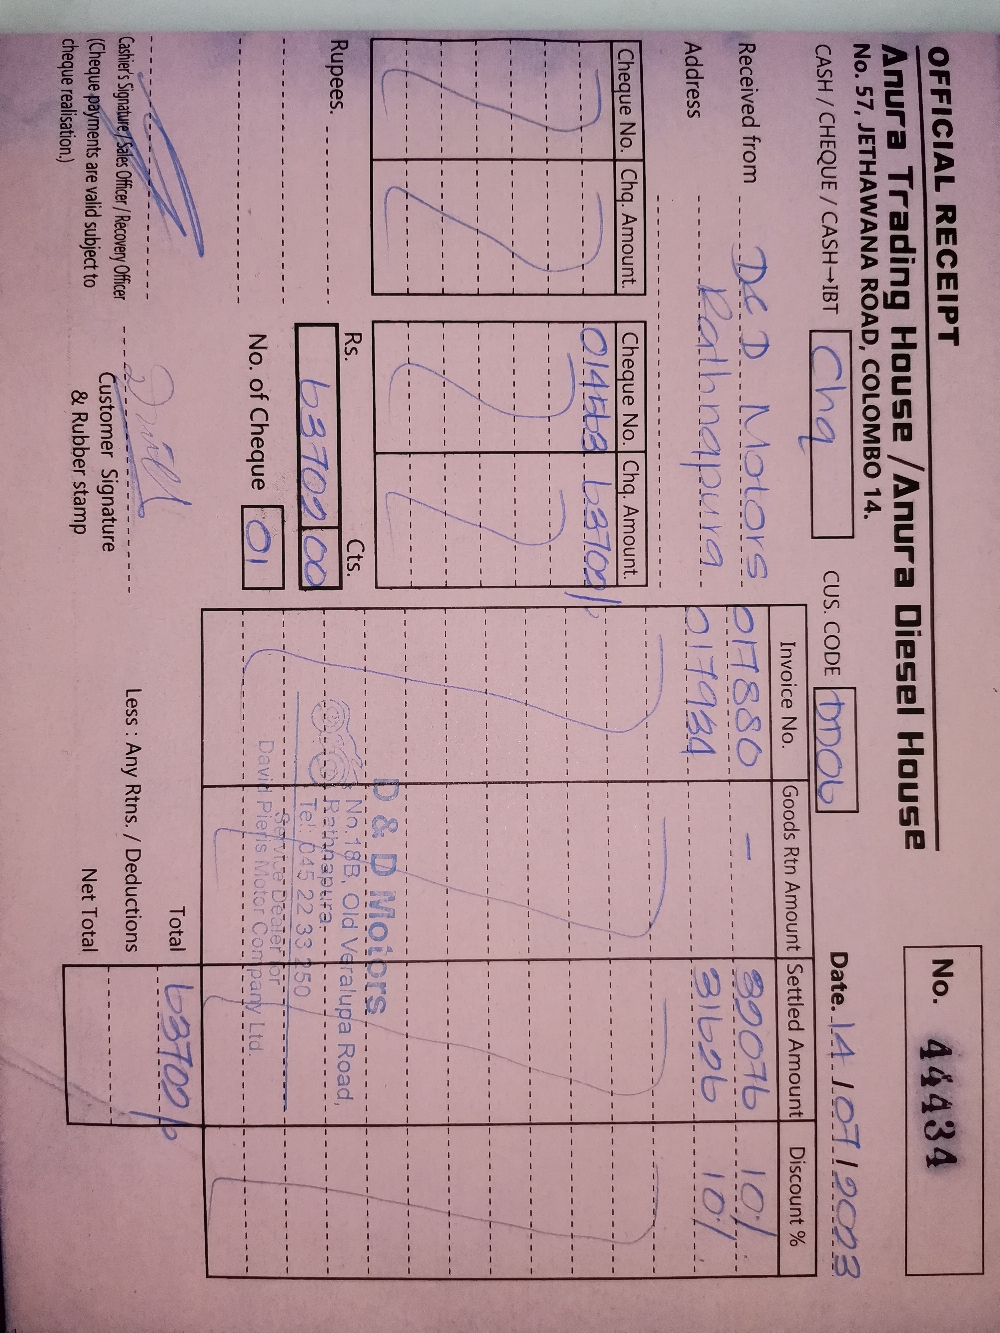 OFFICIAL RECEIPT
No. 44434
Anura Trading House / Anura Diesel House
No. 57, JETHAWANA ROAD, COLOMBO 14.
CASH / CHEQUE / CASH→IBT Chq CUS. CODE DD06 Date. 14 / 07 / 2023
Received from D & D Motors
Address Rathnapura
Cheque No. Chq. Amount. Cheque No. Chq. Amount.
63700/=
Invoice No. Goods Rtn Amount Settled Amount Discount %
017880 – 39076 10%
017934 31626 10%
Rupees.
Rs. Cts.
63700 00
No. of Cheque 01
D & D Motors
No. 18B, Old Veralupa Road,
Rathnapura.
Tel: 045 22 33 250
Service Dealer for
David Pieris Motor Company Ltd.
Total 63700/=
Less : Any Rtns. / Deductions
Net Total
Cashier's Signature / Sales Officer / Recovery Officer
(Cheque payments are valid subject to
cheque realisation.)
Customer Signature
& Rubber stamp